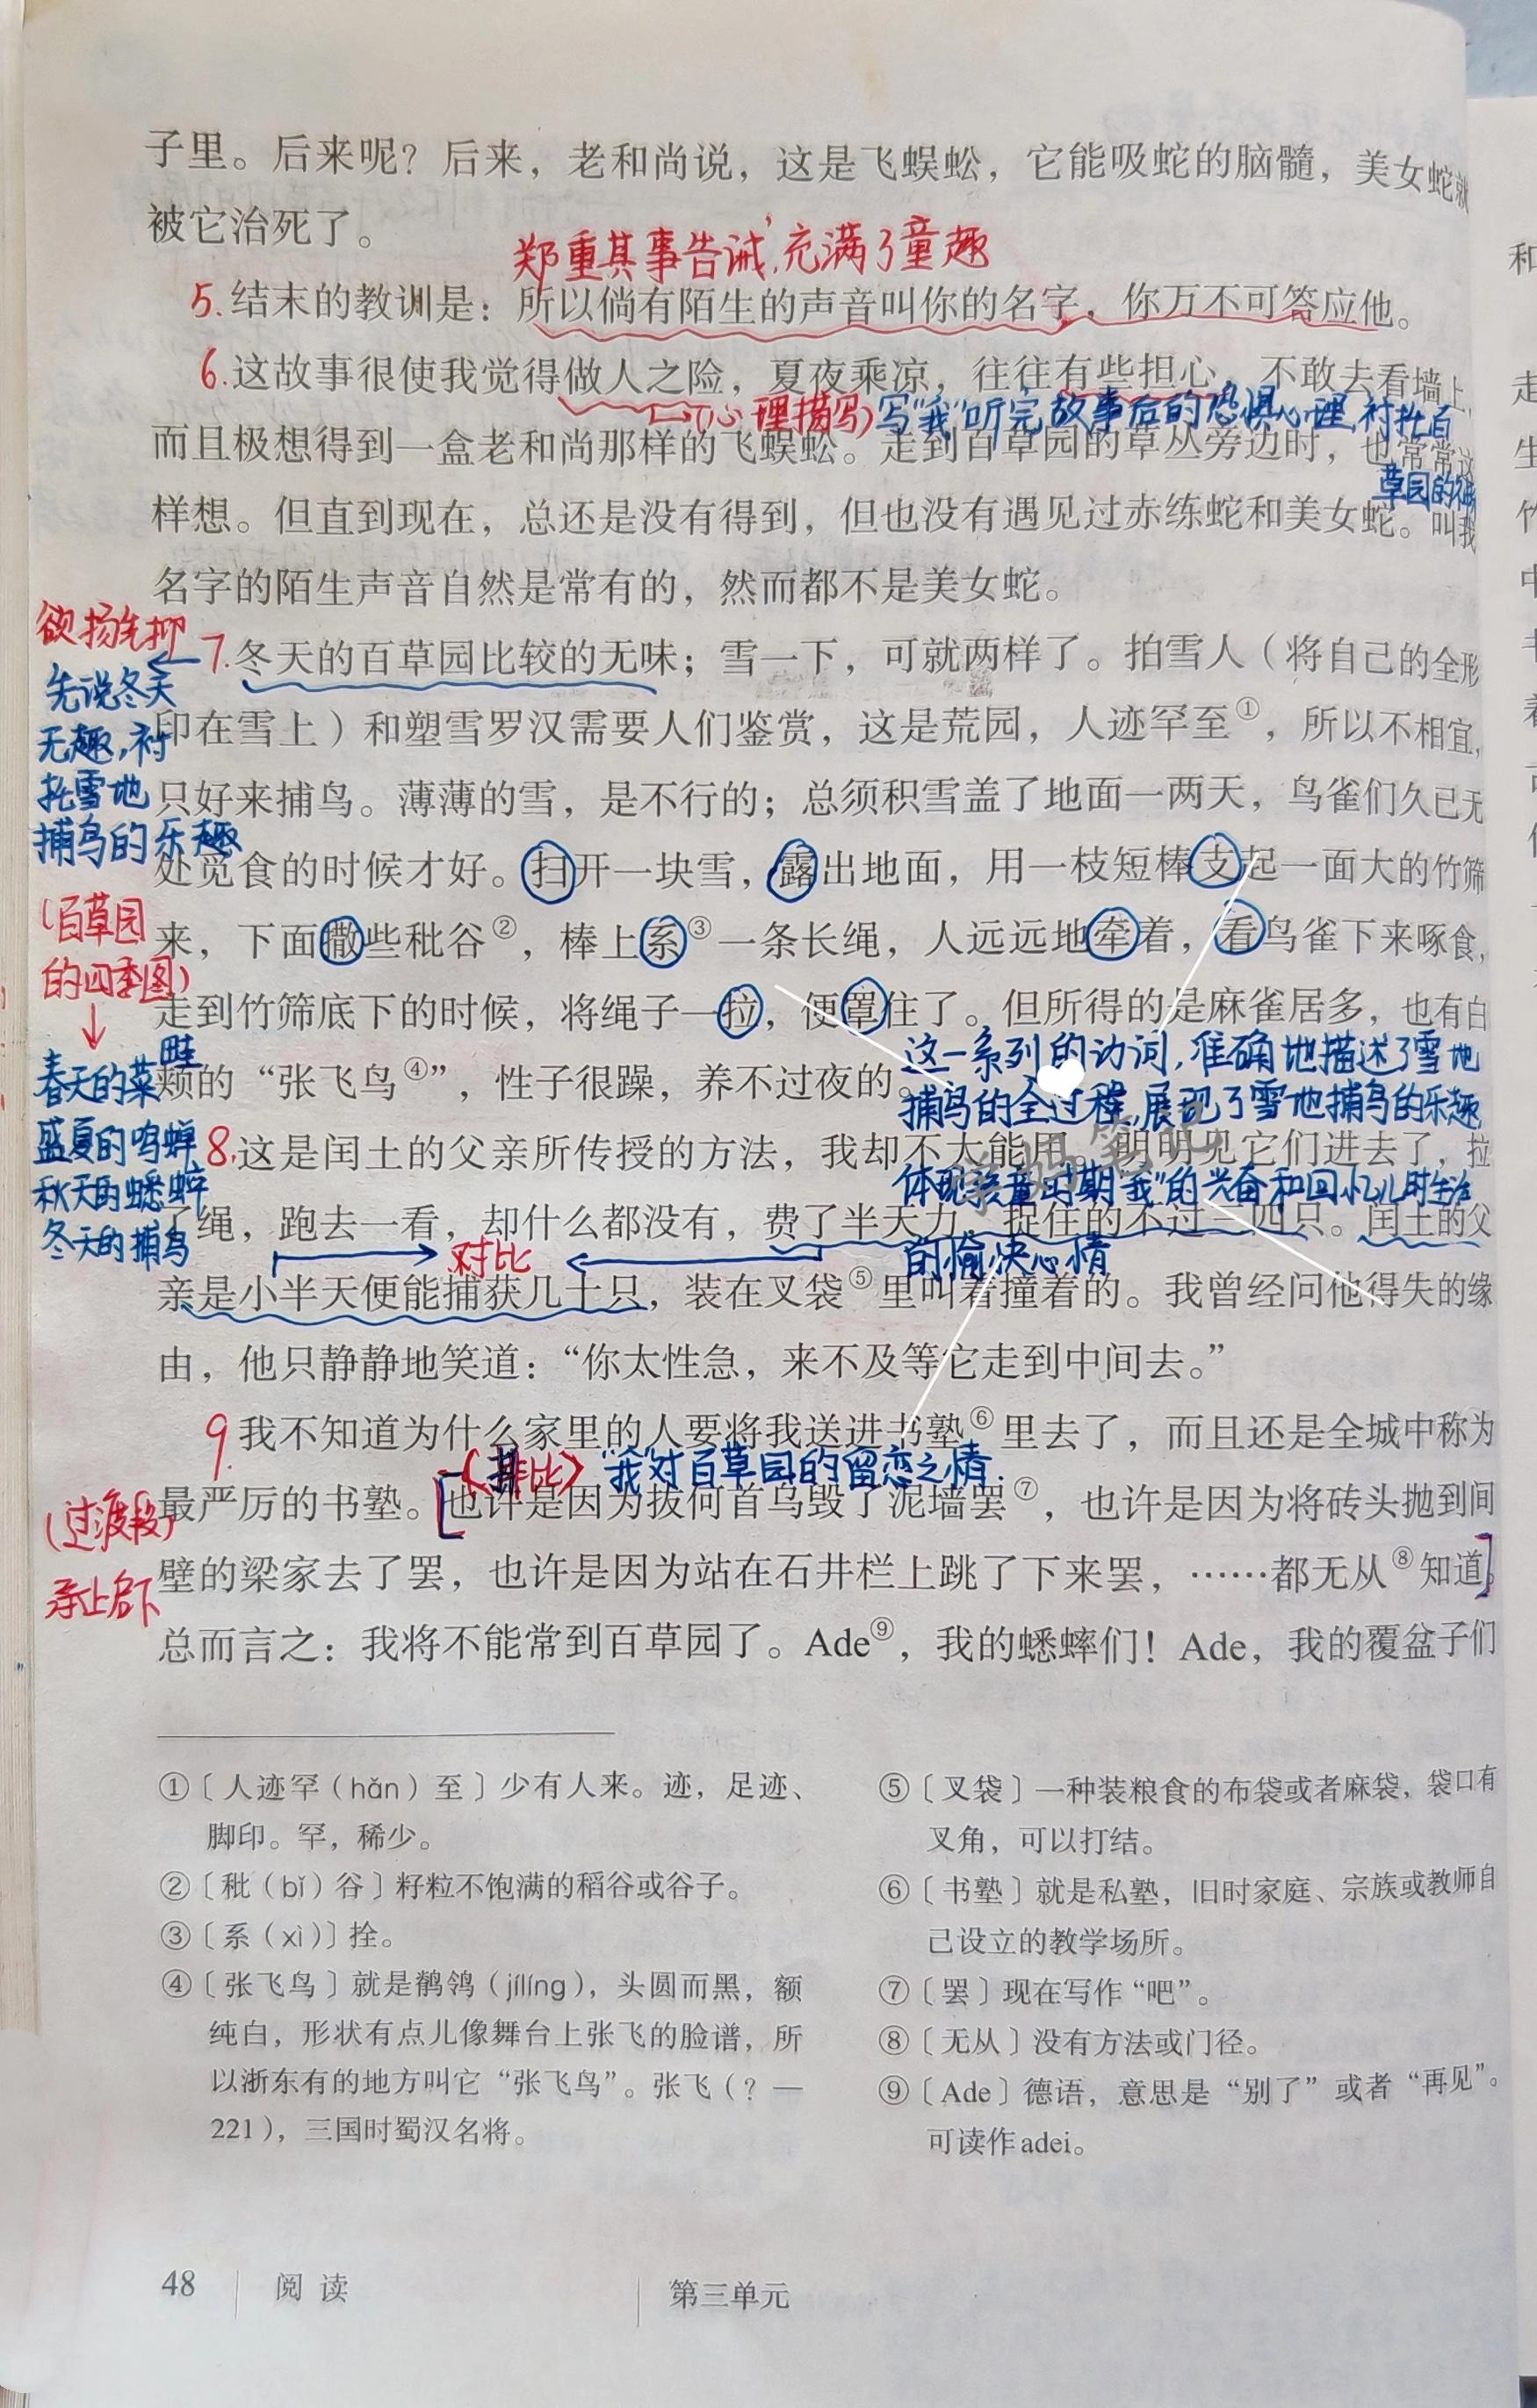 子里。后来呢？后来，老和尚说，这是飞蜈蚣，它能吸蛇的脑髓，美女蛇就
被它治死了。
郑重其事告诫，充满了童趣
5.结末的教训是：所以倘有陌生的声音叫你的名字，你万不可答应他。
6.这故事很使我觉得做人之险，夏夜乘凉，往往有些担心，不敢去看墙上，
(心理描写)写"我"听完故事后的恐惧心理，衬托百
而且极想得到一盒老和尚那样的飞蜈蚣。走到百草园的草丛旁边时，也常常这
草园的
样想。但直到现在，总还是没有得到，但也没有遇见过赤练蛇和美女蛇。叫我
名字的陌生声音自然是常有的，然而都不是美女蛇。
欲扬先抑
7.冬天的百草园比较的无味；雪一下，可就两样了。拍雪人（将自己的全形
先说冬天
印在雪上）和塑雪罗汉需要人们鉴赏，这是荒园，人迹罕至①，所以不相宜，
无趣，衬
托雪地
只好来捕鸟。薄薄的雪，是不行的；总须积雪盖了地面一两天，鸟雀们久已无
捕鸟的乐趣
处觅食的时候才好。扫开一块雪，露出地面，用一枝短棒支起一面大的竹筛
(百草园
来，下面撒些秕谷②，棒上系③一条长绳，人远远地牵着，看鸟雀下来啄食，
的四季图)
走到竹筛底下的时候，将绳子一拉，便罩住了。但所得的是麻雀居多，也有白
这一系列的动词，准确地描述了雪地
春天的菜畦
颊的“张飞鸟④”，性子很躁，养不过夜的。
捕鸟的全过程，展现了雪地捕鸟的乐趣
盛夏的鸣蝉
8.这是闰土的父亲所传授的方法，我却不大能用。明明见它们进去了，拉
体现孩童时期"我"的兴奋和回忆儿时生活
秋天的蟋蟀
了绳，跑去一看，却什么都没有，费了半天力，捉住的不过三四只。闰土的父
冬天的捕鸟
对比
的愉快心情
亲是小半天便能捕获几十只，装在叉袋⑤里叫着撞着的。我曾经问他得失的缘
由，他只静静地笑道：“你太性急，来不及等它走到中间去。”
9.我不知道为什么家里的人要将我送进书塾⑥里去了，而且还是全城中称为
(排比)"我"对百草园的留恋之情.
最严厉的书塾。也许是因为拔何首乌毁了泥墙罢⑦，也许是因为将砖头抛到间
(过渡段)
壁的梁家去了罢，也许是因为站在石井栏上跳了下来罢，……都无从⑧知道。
承上启下
总而言之：我将不能常到百草园了。Ade⑨，我的蟋蟀们！Ade，我的覆盆子们
①〔人迹罕（hǎn）至〕少有人来。迹，足迹、
脚印。罕，稀少。
②〔秕（bǐ）谷〕籽粒不饱满的稻谷或谷子。
③〔系（xì）〕拴。
④〔张飞鸟〕就是鹡鸰（jílíng），头圆而黑，额
纯白，形状有点儿像舞台上张飞的脸谱，所
以浙东有的地方叫它“张飞鸟”。张飞（？—
221），三国时蜀汉名将。
⑤〔叉袋〕一种装粮食的布袋或者麻袋，袋口有
叉角，可以打结。
⑥〔书塾〕就是私塾，旧时家庭、宗族或教师自
己设立的教学场所。
⑦〔罢〕现在写作“吧”。
⑧〔无从〕没有方法或门径。
⑨〔Ade〕德语，意思是“别了”或者“再见”。
可读作adei。
48
阅读
第三单元